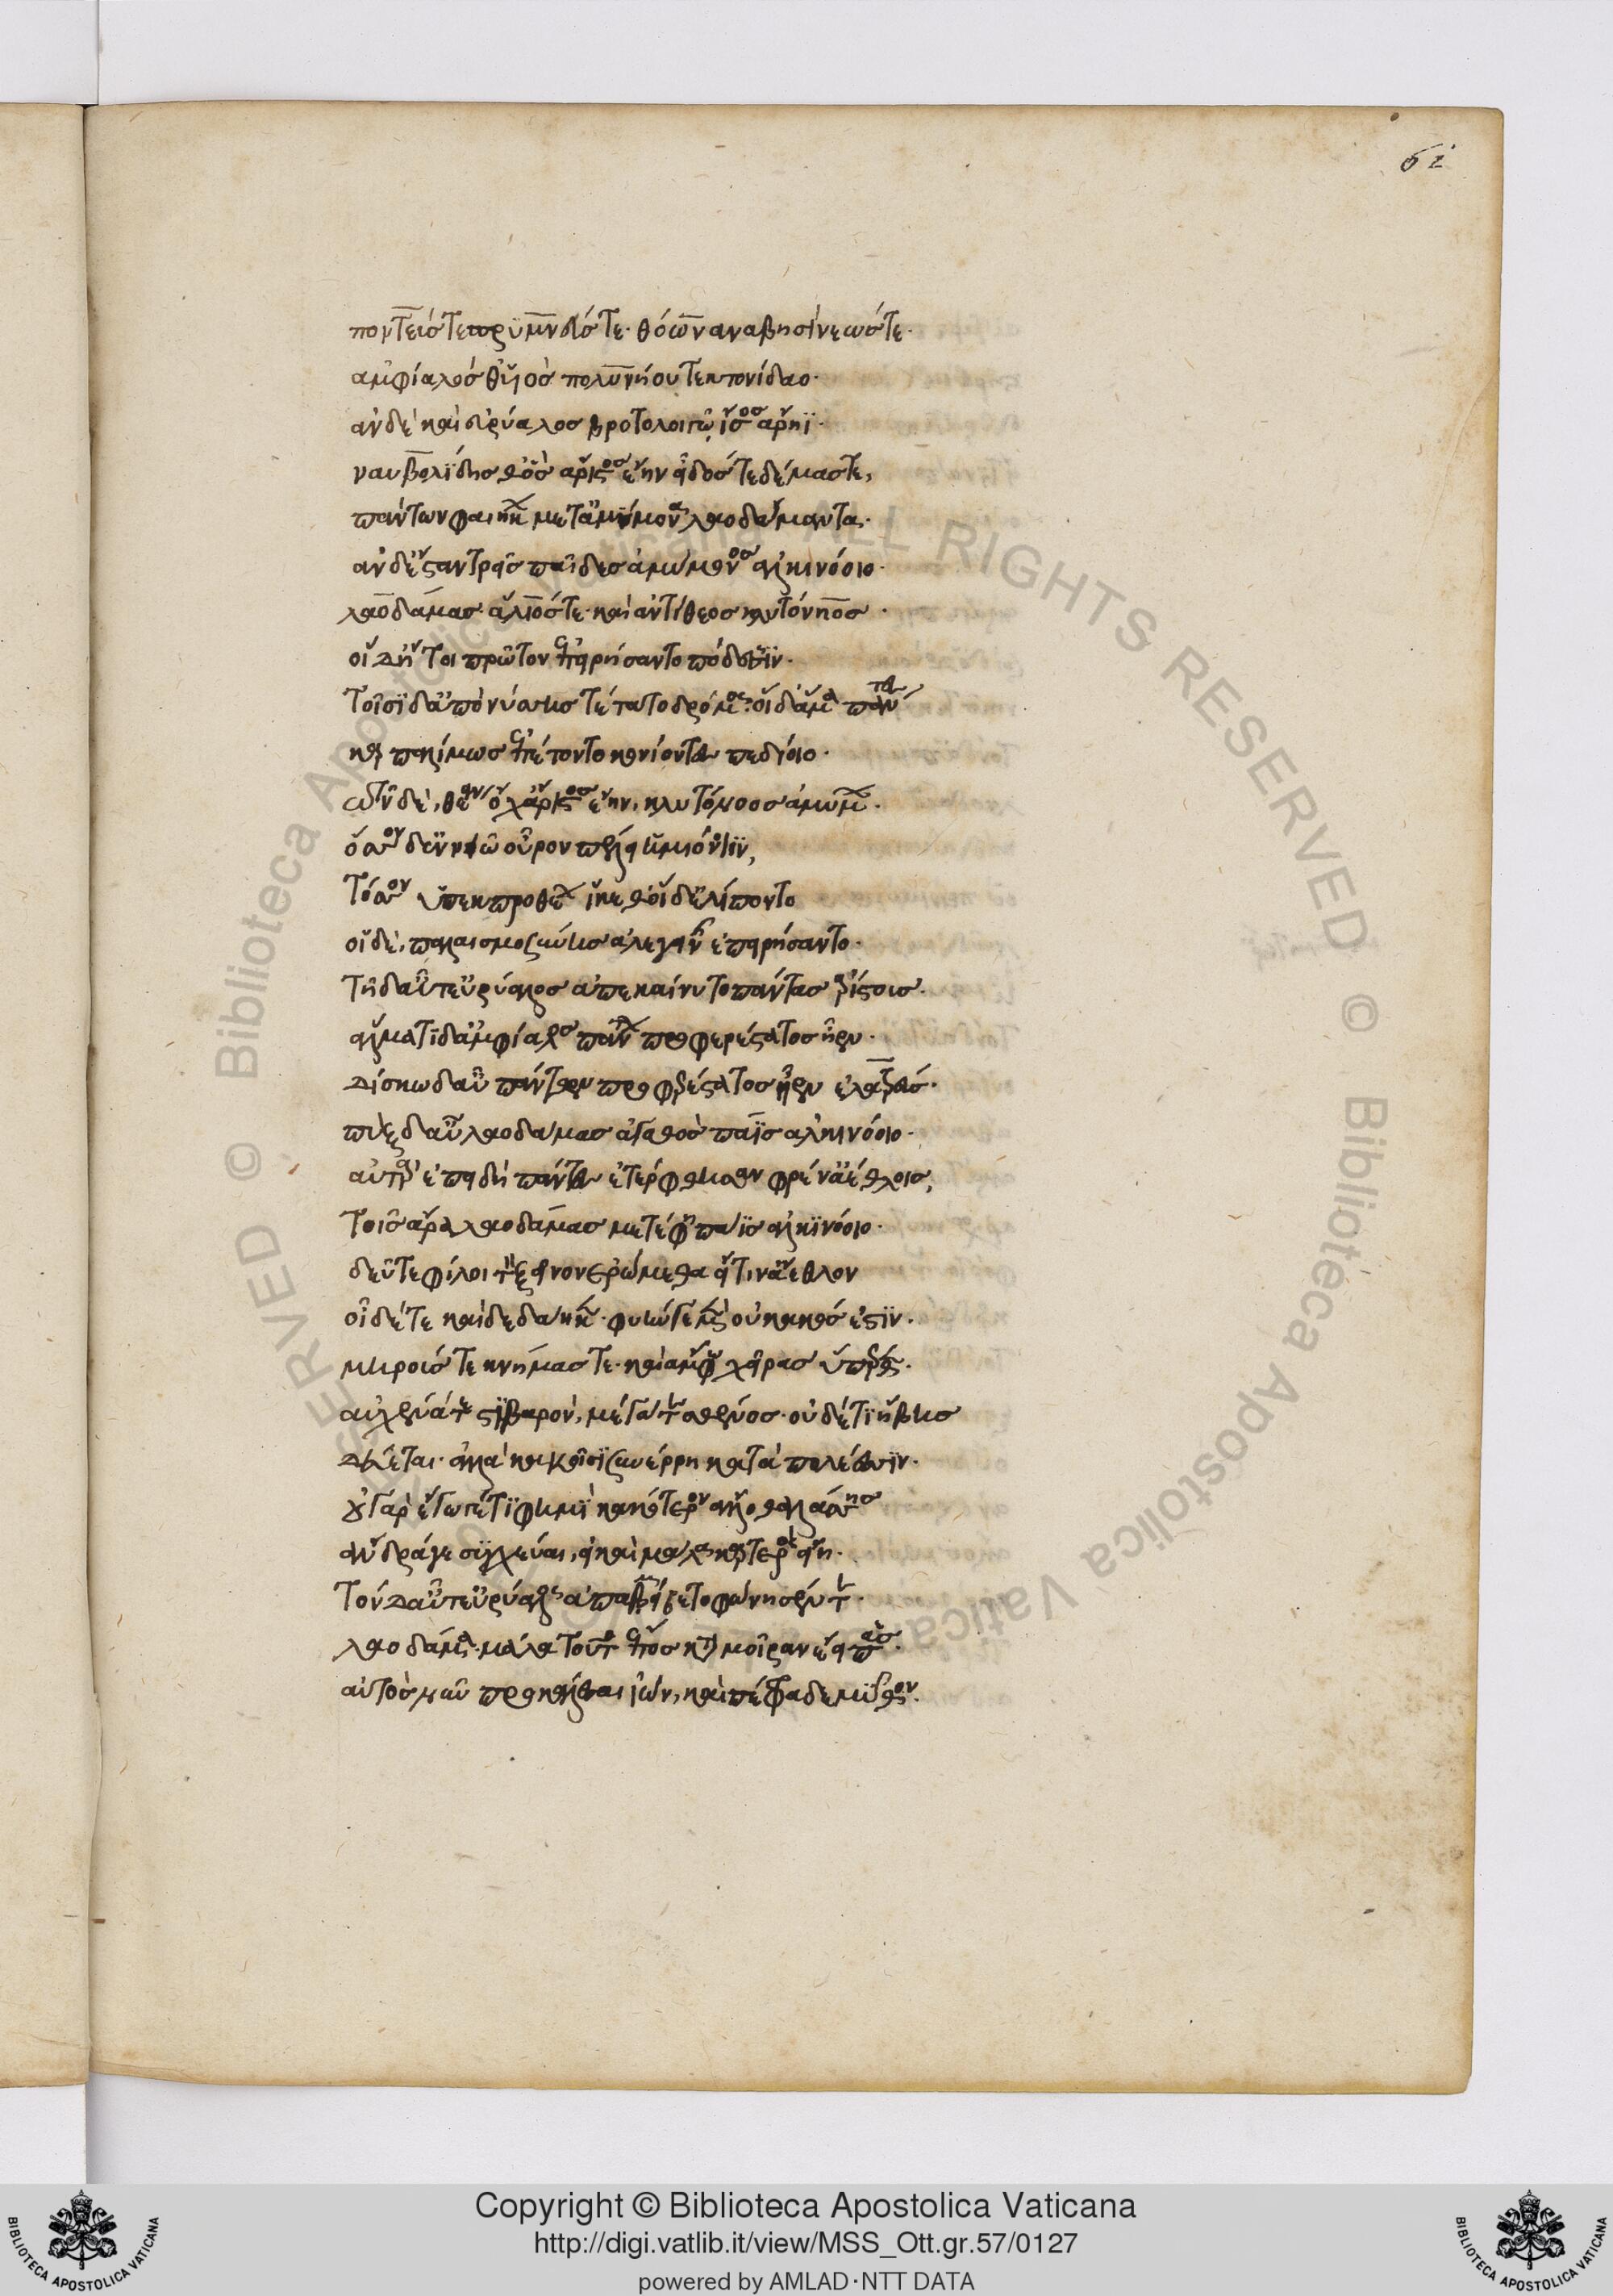 62
ποντεύς τε πρυμνεύς τε· θόων ἀναβησίνεώς τε·
ἀμφίαλός θ' υἱὸς πολυνήου τεκτονίδαο·
ἂν δὲ καὶ εὐρύαλος βροτολοιγῷ ἶσος ἄρηϊ·
ναυβολίδης θ' ὃς ἄριστος ἔην εἶδός τε δέμας τε,
πάντων φαιήκων μετ' ἀμύμονα λαοδάμαντα·
ἂν δ' ἔσταν τρεῖς παῖδες ἀμύμονος ἀλκινόοιο·
λαοδάμας· ἅλιός τε· καὶ ἀντίθεος κλυτόνηος·
οἱ δή τοι πρῶτον ἐπειρήσαντο πόδεσσιν·
τοῖσι δ' ἀπὸ νύσσης τέτατο δρόμος· οἱ δ' ἅμα πάντες
καρπαλίμως ἐπέτοντο κονίοντες πεδίοιο·
τῶν δὲ, θέειν ὄχ' ἄριστος ἔην, κλυτόνηος ἀμύμων·
ὅσσον δ' ἐν νειῷ οὖρον πέλει ἡμιόνοιϊν,
τόσσον ὑπεκπροθέων ἵκεθ' οἱ δ' ἐλίποντο
οἱ δὲ, παλαισμοσύνης ἀλεγεινῆς ἐπειρήσαντο·
τῇ δ' αὖτ' εὐρύαλος ἀπεκαίνυτο πάντας ἀρίστους·
ἅλματι δ' ἀμφίαλος πάντων προφερέστατος ἦεν·
δίσκω δ' αὖ πάντων προφερέστατος ἦεν ἐλατρεύς·
πὺξ δ' αὖ λαοδάμας ἀγαθὸς παῖς ἀλκινόοιο·
αὐτὰρ ἐπειδὴ πάντες ἐτέρφθησαν φρέν' ἀέθλοις,
τοῖς ἄρα λαοδάμας μετέφη παῖς ἀλκινόοιο·
δεῦτε φίλοι τὸν ξεῖνον ἐρώμεθα εἴ τιν' ἄεθλον
οἶδέ τε καὶ δεδάηκε· φυήν γε μὲν οὐ κακός ἐστιν·
μηρούς τε κνήμας τε· καὶ ἄμφω χεῖρας ὕπερθεν·
αὐχένα τε στιβαρὸν, μέγα τε σθένος· οὐδέ τι ἥβης
δεύεται· ἀλλὰ κακοῖσι συνέρρηκται πολέεσσιν·
οὐ γὰρ ἔγωγέ τί φημι κακώτερον ἄλλο θαλάσσης
ἄνδρά γε συγχεῦαι, εἰ καὶ μάλα καρτερὸς εἴη·
τὸν δ' αὖτ' εὐρύαλος ἀπαμείβετο φώνησέν τε·
λαοδάμα· μάλα τοῦτο ἔπος κατὰ μοῖραν ἔειπες·
αὐτὸς νῦν προκάλεσσαι ἰὼν, καὶ πέφραδε μῦθον·
Copyright © Biblioteca Apostolica Vaticana
http://digi.vatlib.it/view/MSS_Ott.gr.57/0127
powered by AMLAD·NTT DATA